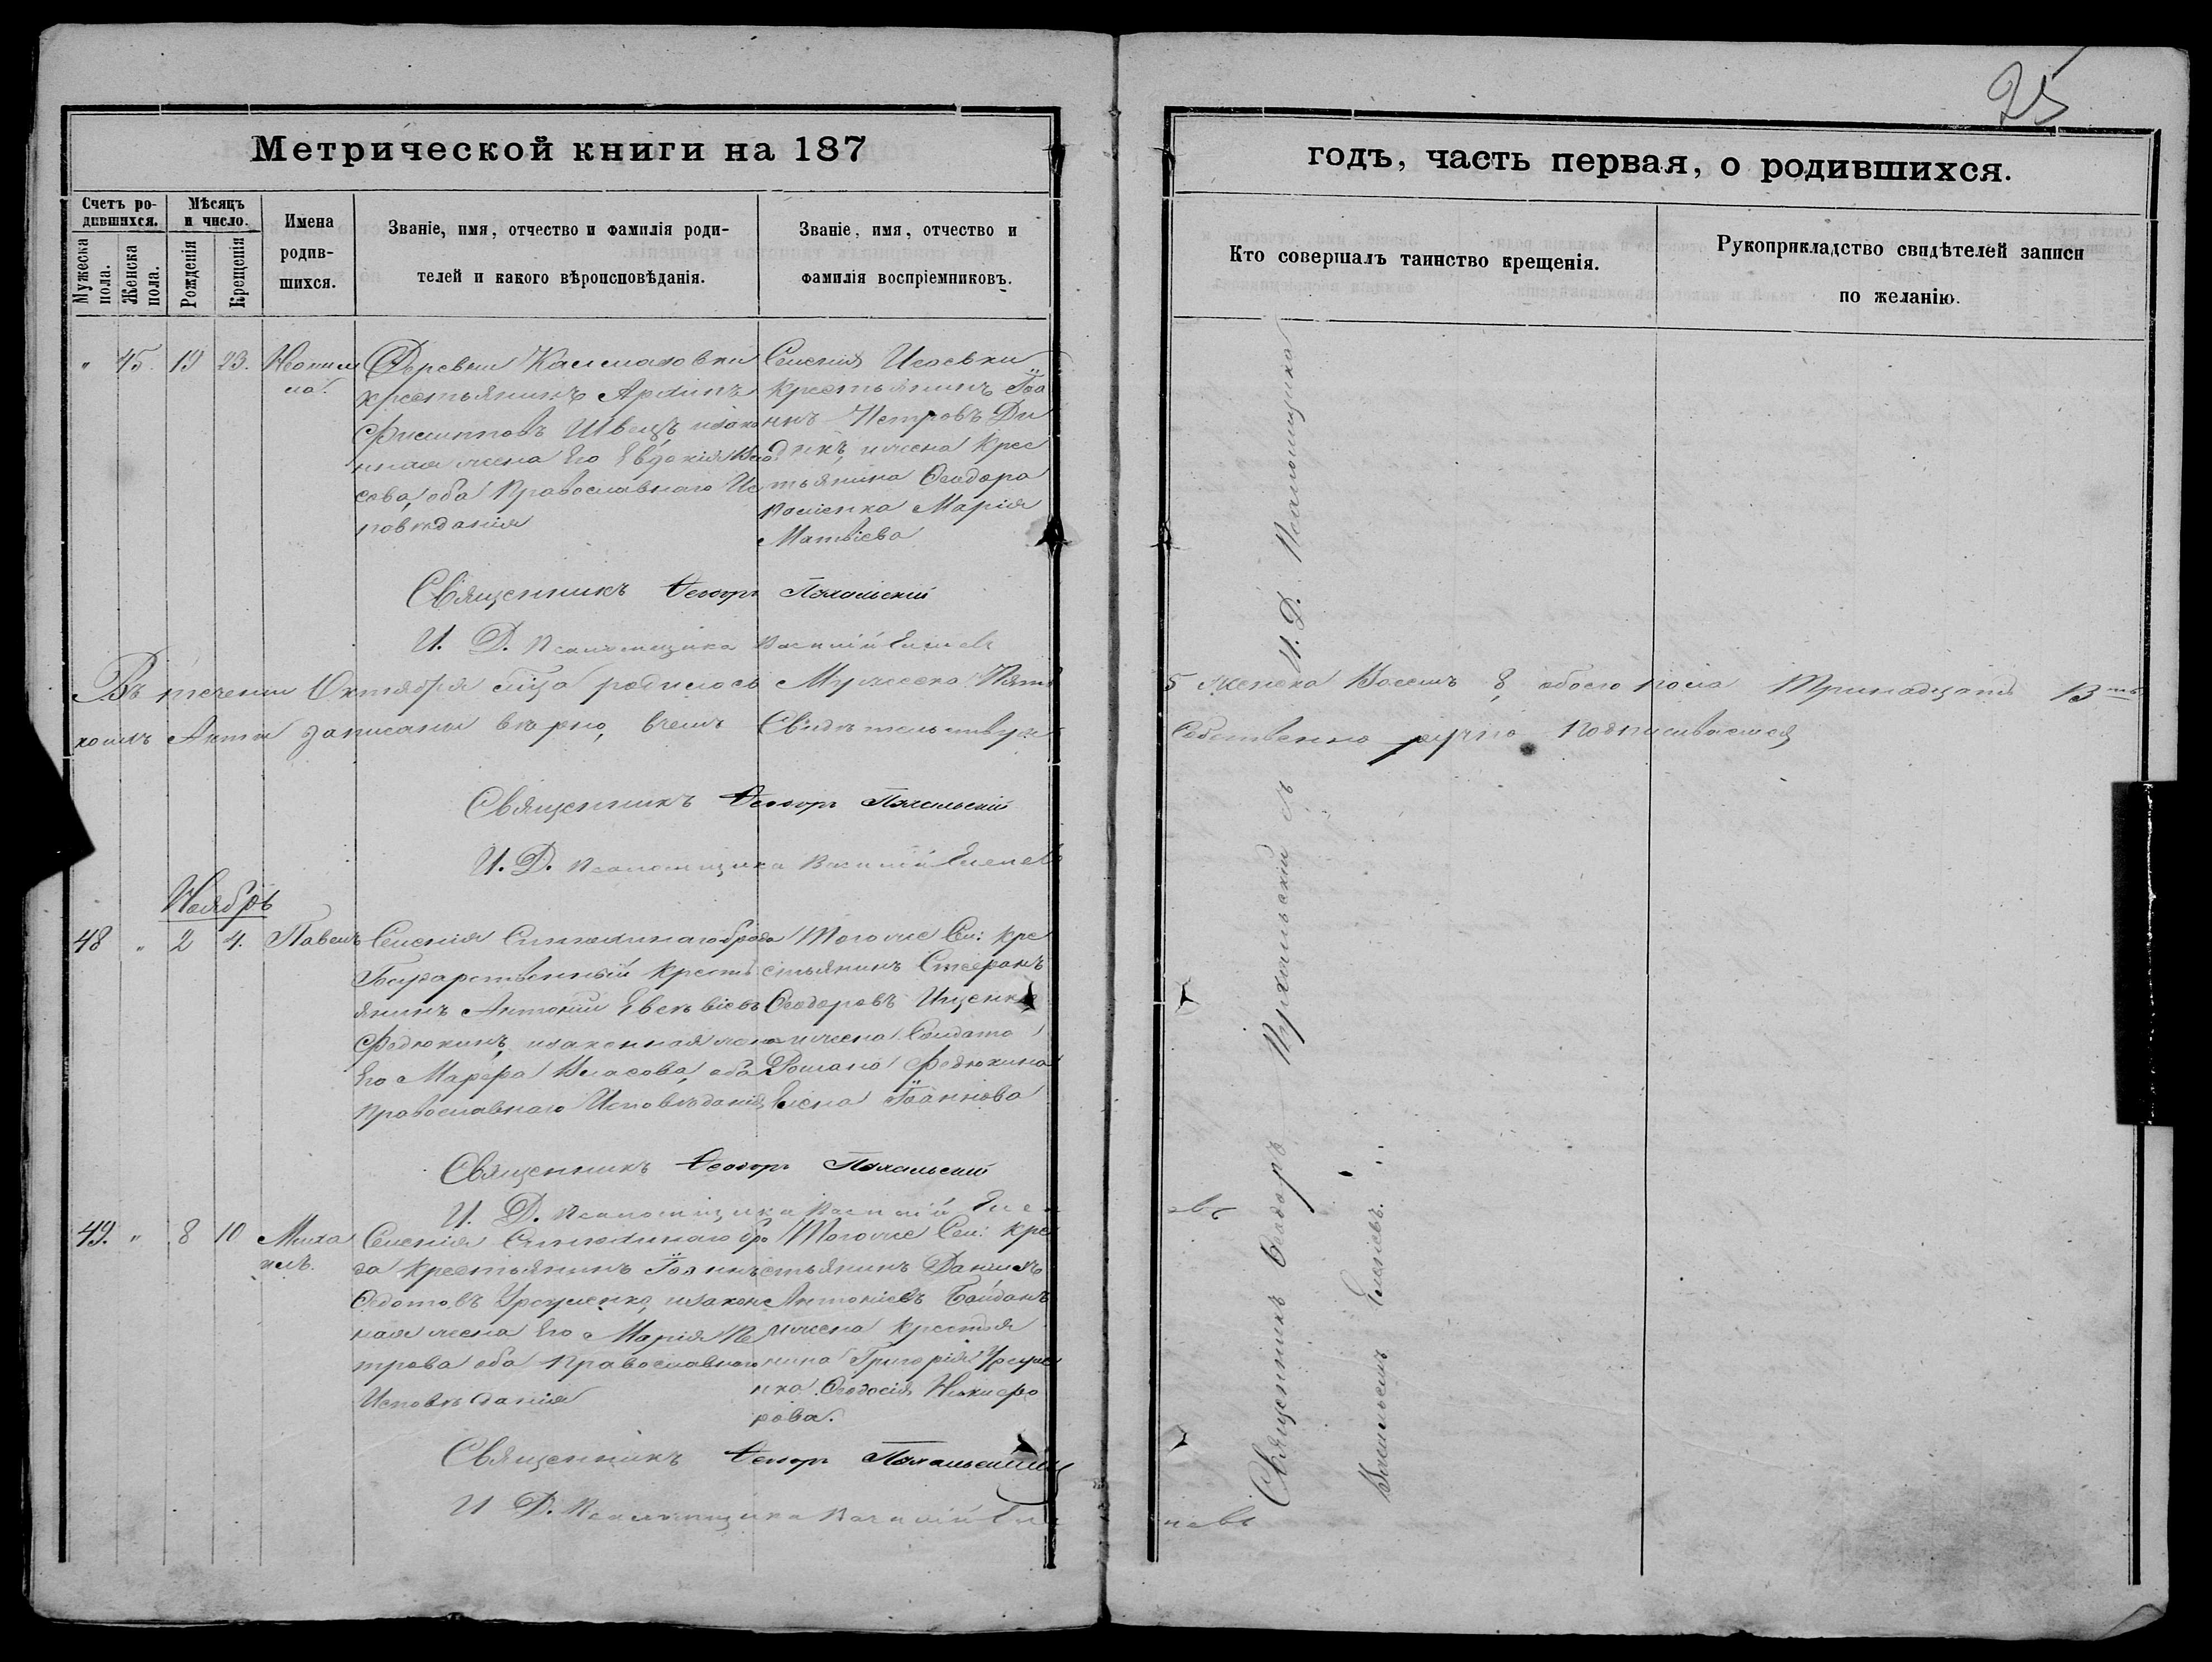 25
Метрической книги на 187
годъ, часть первая, о родившихся.
Счетъ родившихся.
Мужеска пола.
Женска пола.
Мѣсяцъ и число.
Рожденія
Крещенія
Имена родившихся.
Званіе, имя, отчество и фамилія родителей и какого вѣроисповѣданія.
Званіе, имя, отчество и фамилія воспріемниковъ.
Кто совершалъ таинство крещенія.
Рукоприкладство свидѣтелей записи по желанію.
" 45. 19 23. Неонилла.
Деревни
крестьянинъ Архипъ
Филипповъ Швецъ изако
нная жена Его Евдокія Вла
сова, оба Православнаго Ис
повѣданія
Селенія Исаевки
крестьянинъ Іоа
ннъ Петровъ Ди
дикъ, и жена крес
тьянина Феодора
Марія
Матвіева
Священникъ Феодоръ
И. Д. Псаломщика Василій
Въ течении Октября м҃ца родилось Мужеска Пять 5 женска Восемь 8, обоего пола Тринадцать 13ть
коихъ Акты записаны вѣрно, вчемъ Свидѣтельствуя Собственно ручно Подписываемся
Священникъ Феодоръ
И. Д. Псаломщика Василій
Ноябрь
48 " 2 4. Павелъ
Селенія Синюхинаго брода
Государственный кресть
янинъ Антоній Евсѣвіевъ
Федюкинъ, изаконная жена
Его Марфа Власова, оба
Православнаго Исповѣданія
Того же Сел: кре
стьянинъ Стефанъ
Феодоровъ Ищенко
и жена Солдата
Романа Федюкина
Елена Іоаннова
Священникъ Феодоръ
И. Д. Псаломщика Василій
49. " 8 10 Миха
илъ.
Селенія Синюхинаго бро
да крестьянинъ Іоаннъ
Федотовъ изакон
ная жена Его Марія Пе
трова оба Православнаго
Исповѣданія
Того же Сел: кре
стьянинъ Даніилъ
Антоніевъ Байданъ
и жена крестья
нина Григорія
нка Феодосія Никифо
рова.
Священникъ Феодоръ
И. Д. Псаломщика Василій
Священникъ Феодоръ съ И. Д. Псаломщика
Василіемъ